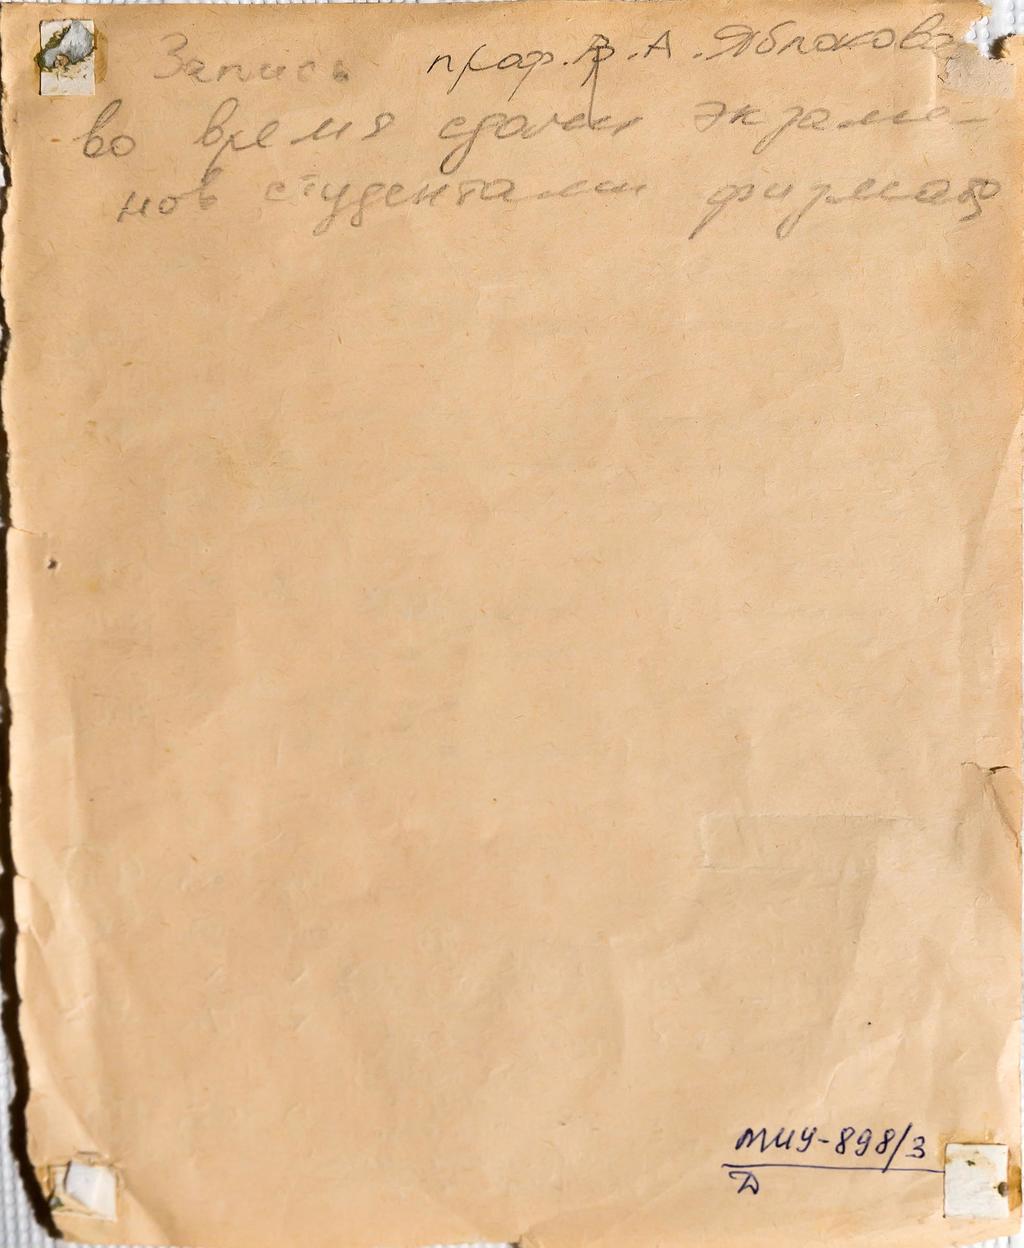 Запись проф. В.А. Яблокова
во время сдачи экзаме-
нов студентами физмата
МИУ-898/3
Д